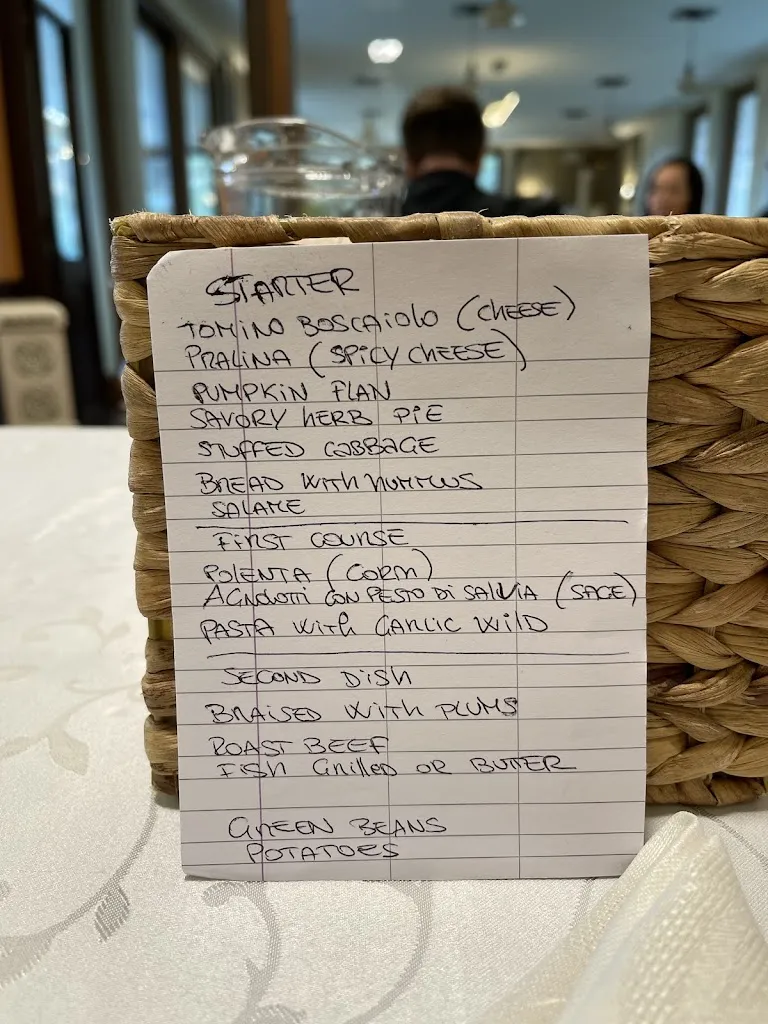 STARTER
TOMINO BOSCAIOLO (CHEESE)
PRALINA (SPICY CHEESE)
PUMPKIN FLAN
SAVORY HERB PIE
STUFFED CABBAGE
BREAD WITH HUMMUS
SALAME
FIRST COURSE
POLENTA (CORN)
AGNOLOTTI CON PESTO DI SALVIA (SAGE)
PASTA WITH GARLIC WILD
SECOND DISH
BRAISED WITH PLUMS
ROAST BEEF
FISH GRILLED OR BUTTER
GREEN BEANS
POTATOES